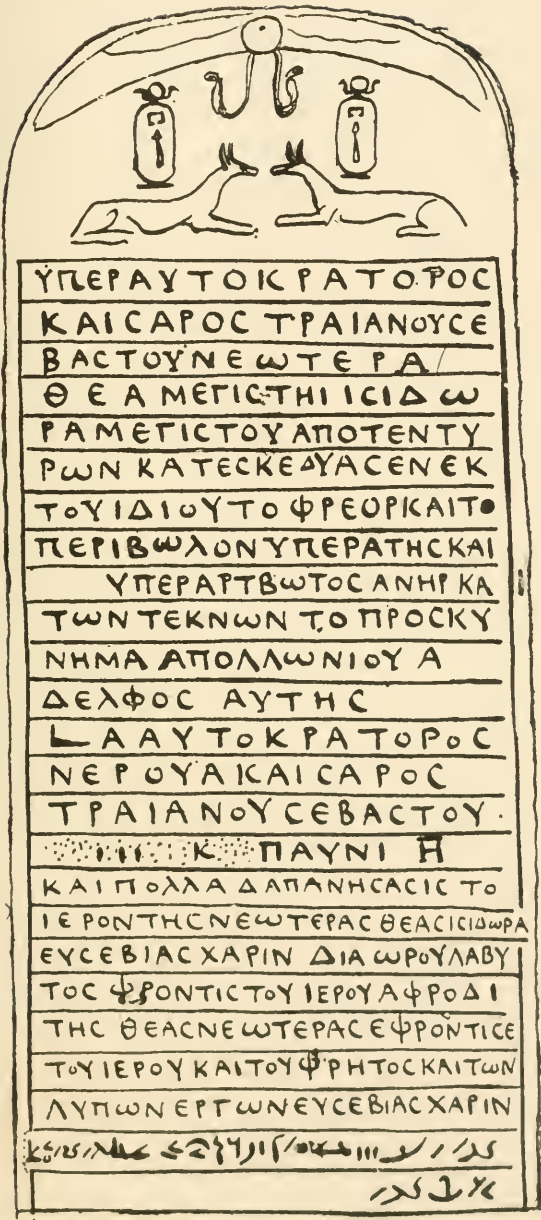 ΥΠΕΡΑΥΤΟΚΡΑΤΟΡΟС
ΚΑΙСΑΡΟС ΤΡΑΙΑΝΟΥСΕ
ΒΑСΤΟΥΝΕωΤΕΡΑ
ΘΕΑ ΜΕΓΙСΤΗΙ ΙСΙΔω
ΡΑ ΜΕΓΙСΤΟΥ ΑΠΟΤΕΝΤΥ
ΡωΝ ΚΑΤΕСΚΕΔΥΑСΕΝΕΚ
ΤΟΥΙΔΙΟΥΤΟΦΡΕΟΡΚΑΙΤΟ
ΠΕΡΙΒωλΟΝΥΠΕΡΑΤΗСΚΑΙ
ΥΠΕΡΑΡΤΒωΤΟС ΑΝΗΡ ΚΑ
ΤωΝ ΤΕΚΝωΝ ΤΟ ΠΡΟСΚΥ
ΝΗΜΑ ΑΠΟΛΛωΝΙΟΥ Α
ΔΕλΦΟС ΑΥΤΗС
L Α ΑΥΤΟΚΡΑΤΟΡΟС
ΝΕΡΟΥΑΚΑΙСΑΡΟС
ΤΡΑΙΑΝΟΥСΕΒΑСΤΟΥ
Κ ΠΑΥΝΙ Η
ΚΑΙ ΠΟΛΛΑ ΔΑΠΑΝΗСΑСΙС ΤΟ
ΙΕΡΟΝΤΗСΝΕωΤΕΡΑС ΘΕΑСΙСΙΔωΡΑ
ΕΥСΕΒΙΑС ΧΑΡΙΝ ΔΙΑ ωΡΟΥΛΑΒΥ
ΤΟС ΦΡΟΝΤΙСΤΟΥ ΙΕΡΟΥ ΑΦΡΟΔΙ
ΤΗС ΘΕΑСΝΕωΤΕΡΑС ΕΦΡΟΝΤΙСΕ
ΤΟΥΙΕΡΟΥ ΚΑΙΤΟΥ ΦΡΗΤΟС ΚΑΙΤωΝ
ΛΥΠωΝ ΕΡΓωΝΕΥСΕΒΙΑС ΧΑΡΙΝ